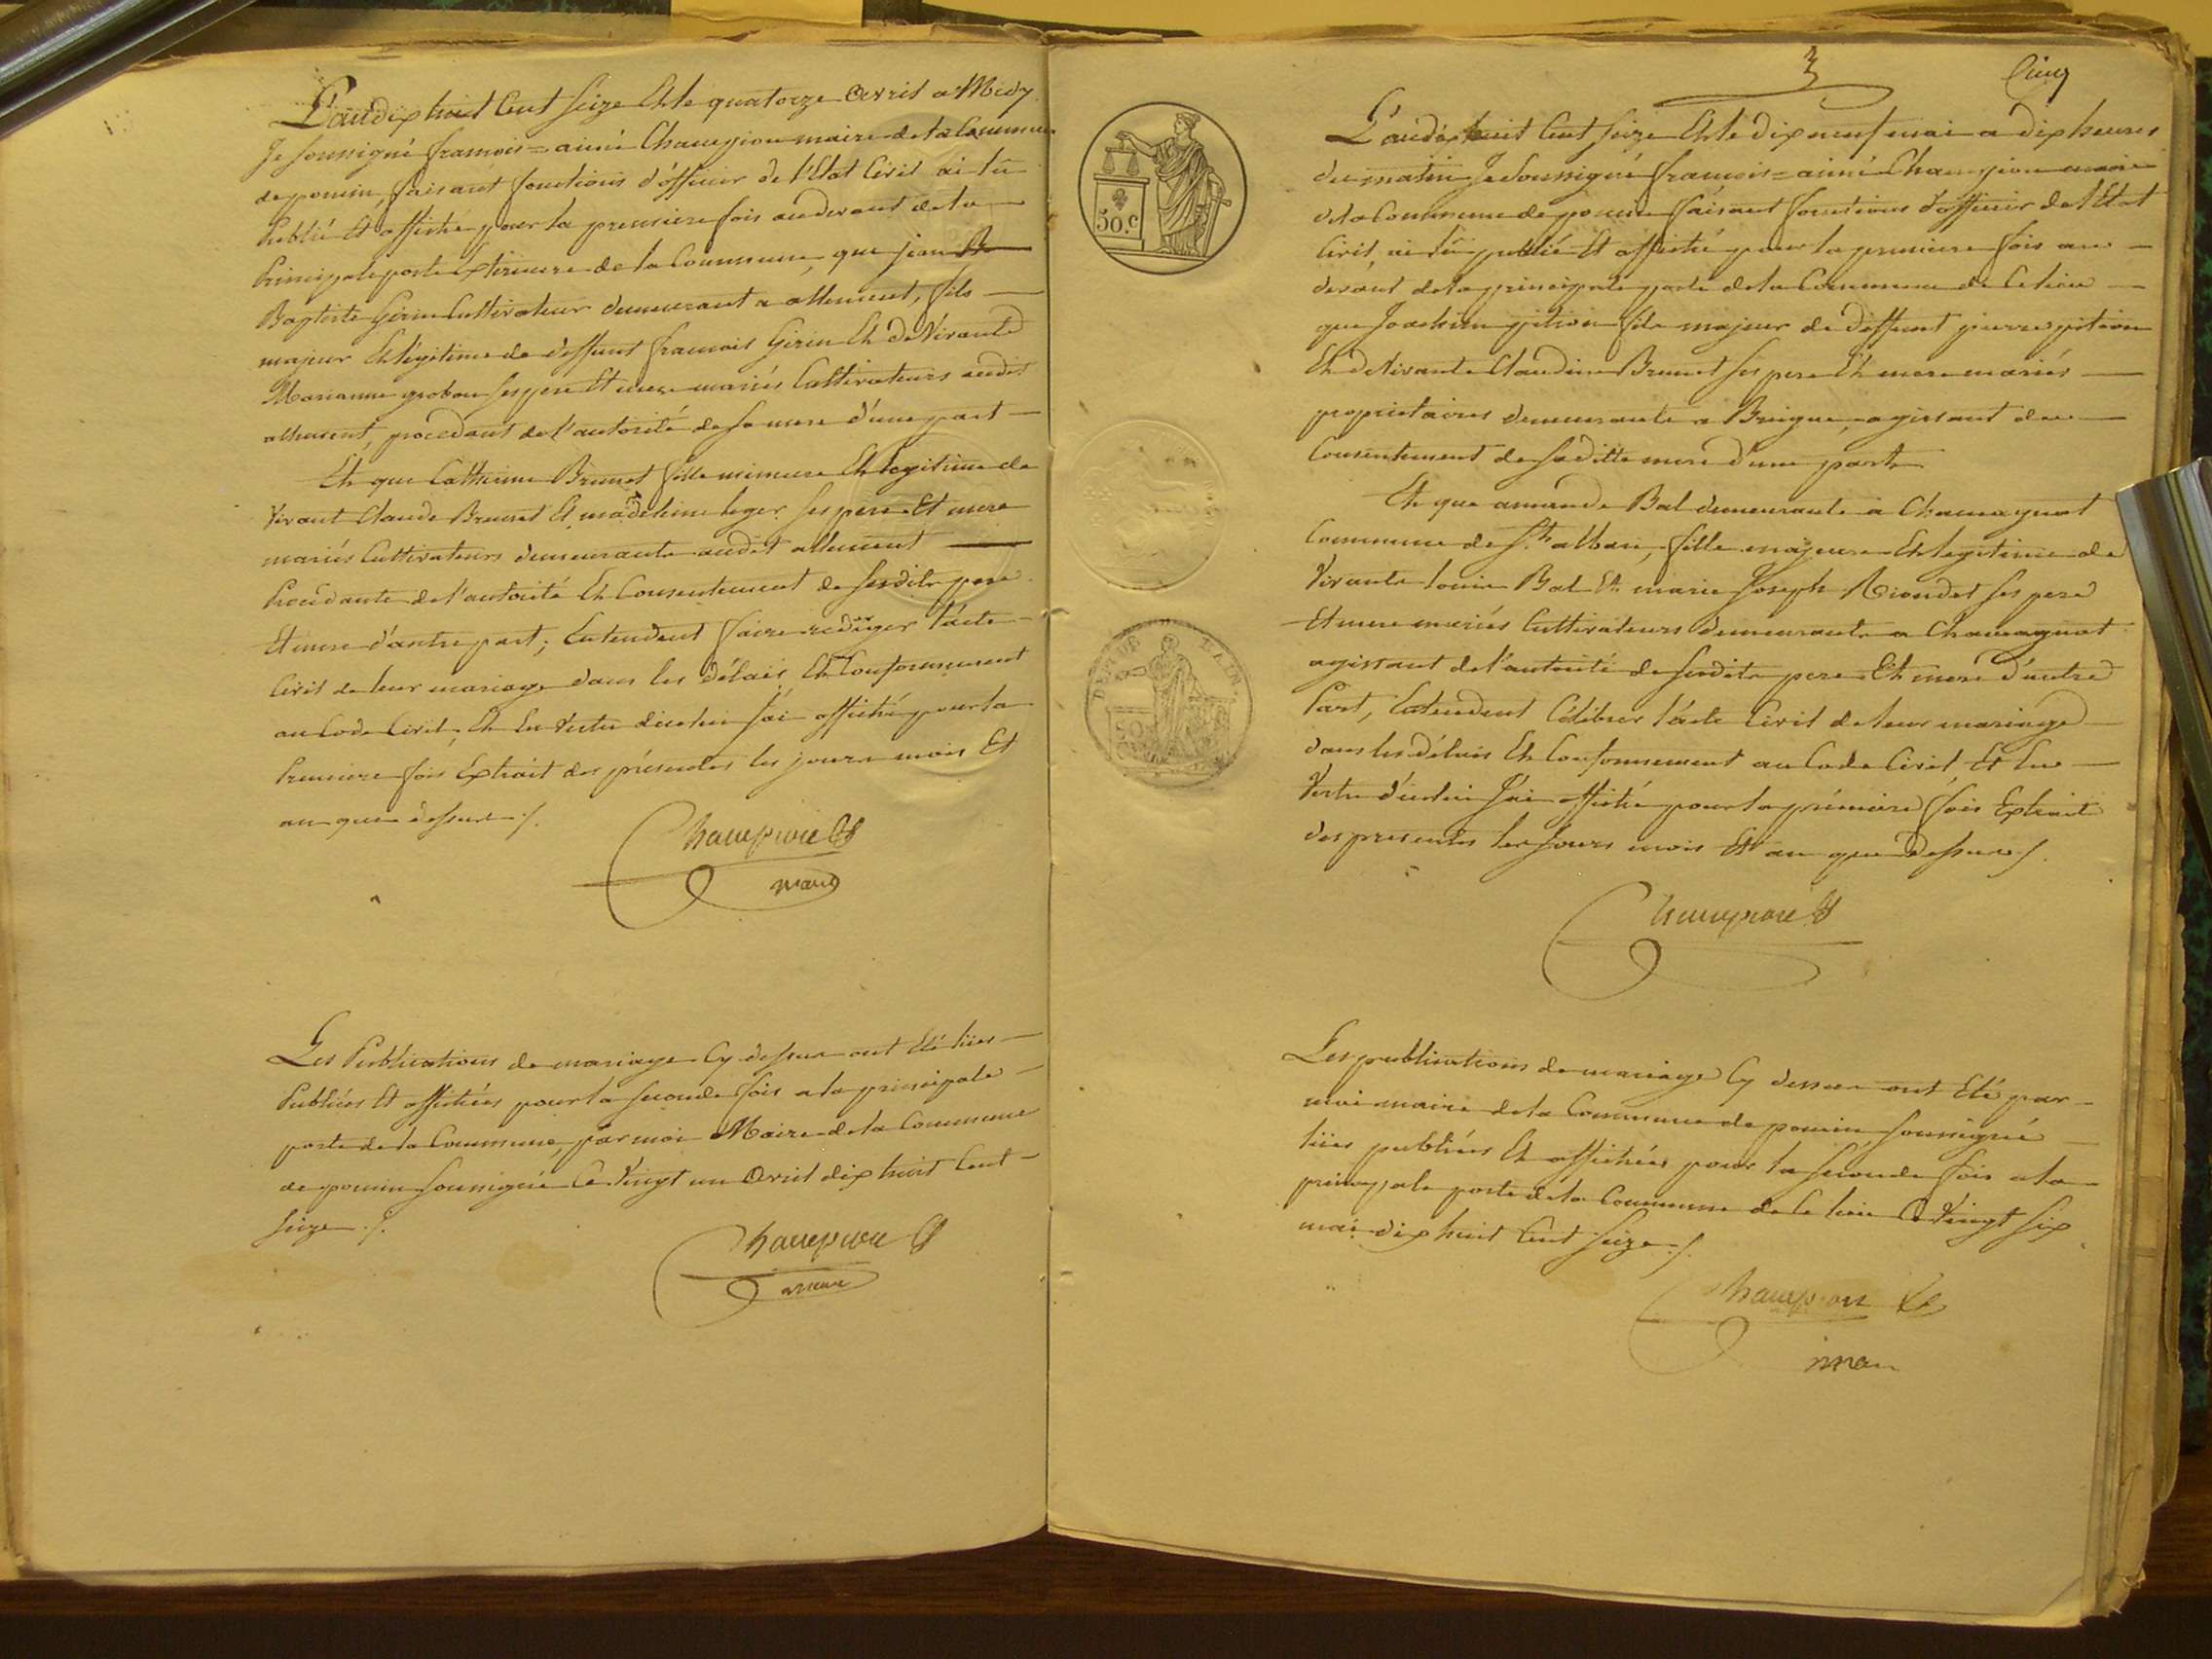 L'an dix huit Cent Seize Et le quatorze avril a Midy
Je soussigné francois=aimé Champion maire de la Commune
de poncin, faisant fonctions d'officier de l'Etat Civil ai lû
Publié Et affiché pour la premiere fois audevant de la
Principale porte Exterieure de la Commune, que jean
Baptiste Girin Cultivateur demeurant a allement, fils
majeur Et légitime de deffunt francois Girin Et de Vivante
Marianne grobon ses pere Et mere mariés Cultivateurs audit
allement, procedant de l'autorité de sa mere d'une part
Et que Catherine Brunet fille mineure Et legitime de
Vivant Claude Brunet Et madeleine leger ses pere Et mere
mariés Cultivateurs demeurants audit allement
Procédante de l'autorité Et Consentement de sesdits pere
Et mere d'autre part; Entendent faire rediger l'acte
Civil de leur mariage dans les délais Et Conformement
au Code Civil, Et En Vertu dicelui j'ai affiché pour la
Premiere fois Extrait des présentes les jours mois Et
an que dessus ./.
Champion
maire
Les Publications de mariage Cy dessus ont Eté lües
Publiées Et affichées pour la seconde fois a la principale
porte de la Commune, par moi Maire de la Commune
de poncin soussigné Ce Vingt un avril dix huit Cent
Seize ./.
Champion
maire
3
Cinq
50.C
L'an dix huit Cent Seize Et le dix neuf mai a dix heures
du matin Je soussigné francois=aimé Champion maire
de la Commune de poncin faisant fonctions d'officier de l'Etat
Civil, ai lû publié Et affiché pour la premiere fois au
devant de la principale porte de la Commune de Ce lieu
que Joachim pition fils majeur de deffunt pierre pition
Et de Vivante Claudine Brunet ses pere Et mere mariés
proprietaires demeurants a Breigne, agissant du
Consentement de saditte mere d'une part
Et que amande Bal demeurante a Chamagnat
Commune de St alban, fille majeure Et legitime de
Vivants louis Bal Et marie Joseph Riondet ses pere
Et mere mariés Cultivateurs demeurants a Chamagnat
agissant de l'autorité de sesdits pere Et mere d'autre
Part, Entendent Célébrer l'acte Civil de leur mariage
dans les délais Et Conformement au Code Civil, Et En
Vertu d'icelui J'ai affiché pour la prémiere fois Extrait
des presentes les Jours mois Et an que dessus ./.
Champion
DEP. DE L'AIN
50
Les publications de mariage Cy dessus ont Eté par
moi maire de la Commune de poncin soussigné
lües publiées Et affichées pour la seconde fois a la
principale porte de la Commune de Ce lieu Ce Vingt six
mai dix huit Cent Seize ./.
Champion